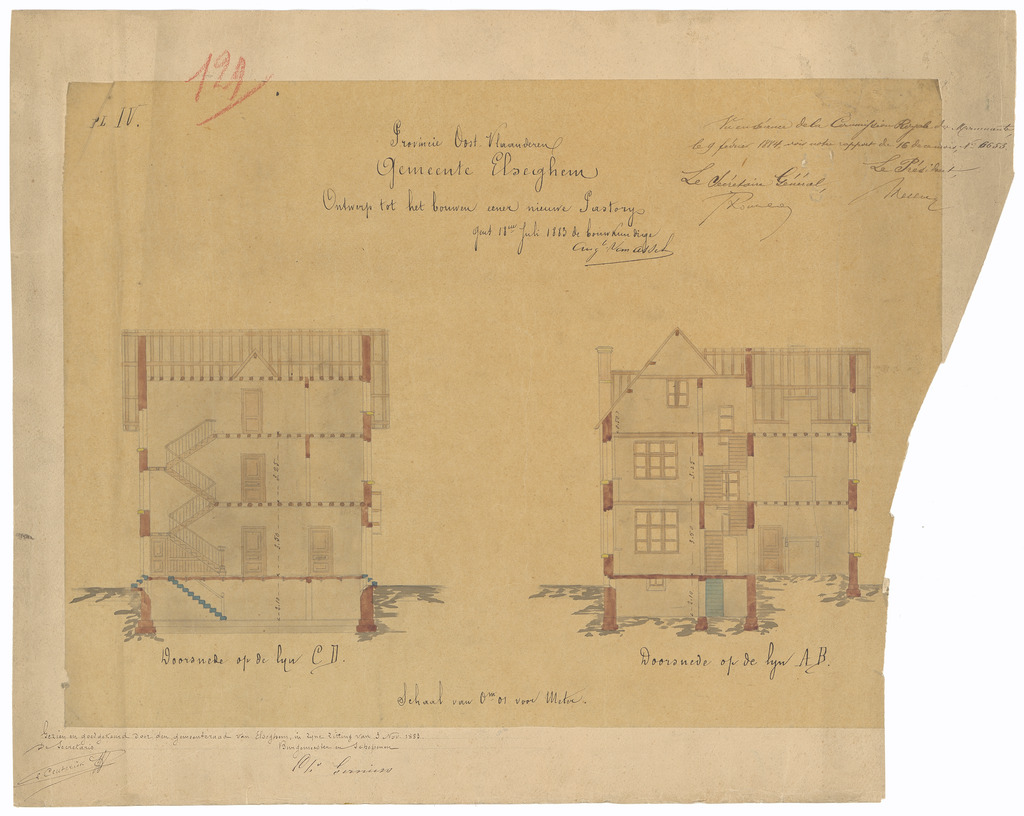 121
Pl. IV.
Provincie Oost-Vlaanderen
Gemeente Elseghem
Ontwerp tot het bouwen eener nieuwe Pastory
Gent 18en Juli 1883 de bouwkundige
Aug. Van Assche
Vu en séance de la Commission Royale des Monuments
le 9 février 1884, voir notre rapport du 16 de ce mois, no
Le Secrétaire Général,
Le Président,
3.05
3.80
2.10
3.05
3.80
2.10
Doorsnede op de lyn C D.
Doorsnede op de lyn A B.
Schaal van 0m 01 voor Meter.
Gezien en goedgekeurd door den gemeenteraad van Elseghem, in zyne zitting van 3 Nov. 1883.
De Secretaris
Burgemeester en Schepenen